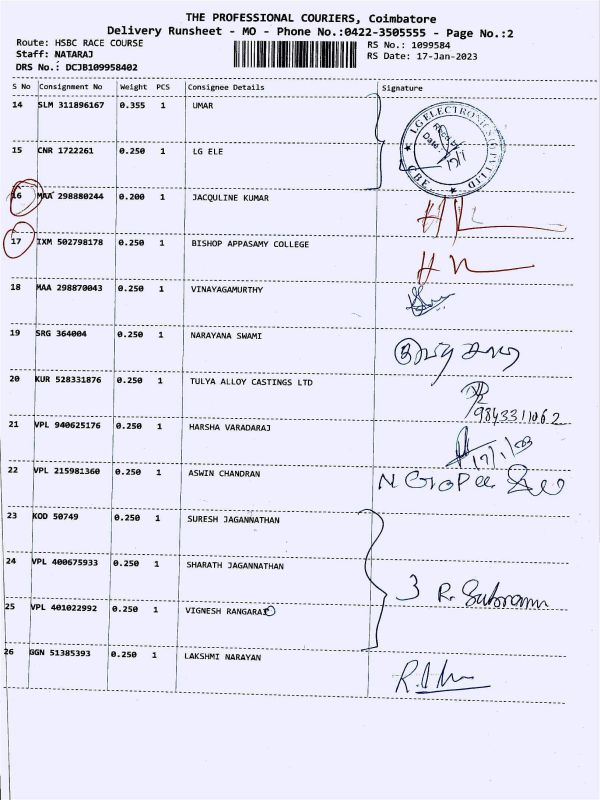 THE PROFESSIONAL COURIERS, Coimbatore
Delivery Runsheet - MO - Phone No.:0422-3505555 - Page No.:2
Route: HSBC RACE COURSE
Staff: NATARAJ
DRS No.: DCJB109958402
RS No.: 1099584
RS Date: 17-Jan-2023
S No Consignment No Weight PCS Consignee Details Signature
14 SLM 311896167 0.355 1 UMAR
LG ELECTRONICS I PVT LTD
CBE
Date:
15 CNR 1722261 0.250 1 LG ELE
16 MAA 298880244 0.200 1 JACQULINE KUMAR
17 IXM 502798178 0.250 1 BISHOP APPASAMY COLLEGE
18 MAA 298870043 0.250 1 VINAYAGAMURTHY
19 SRG 364004 0.250 1 NARAYANA SWAMI
20 KUR 528331876 0.250 1 TULYA ALLOY CASTINGS LTD
9843311062
21 VPL 940625176 0.250 1 HARSHA VARADARAJ
22 VPL 215981360 0.250 1 ASWIN CHANDRAN
23 KOD 50749 0.250 1 SURESH JAGANNATHAN
24 VPL 400675933 0.250 1 SHARATH JAGANNATHAN
3
25 VPL 401022992 0.250 1 VIGNESH RANGARAJ
26 GGN 51385393 0.250 1 LAKSHMI NARAYAN